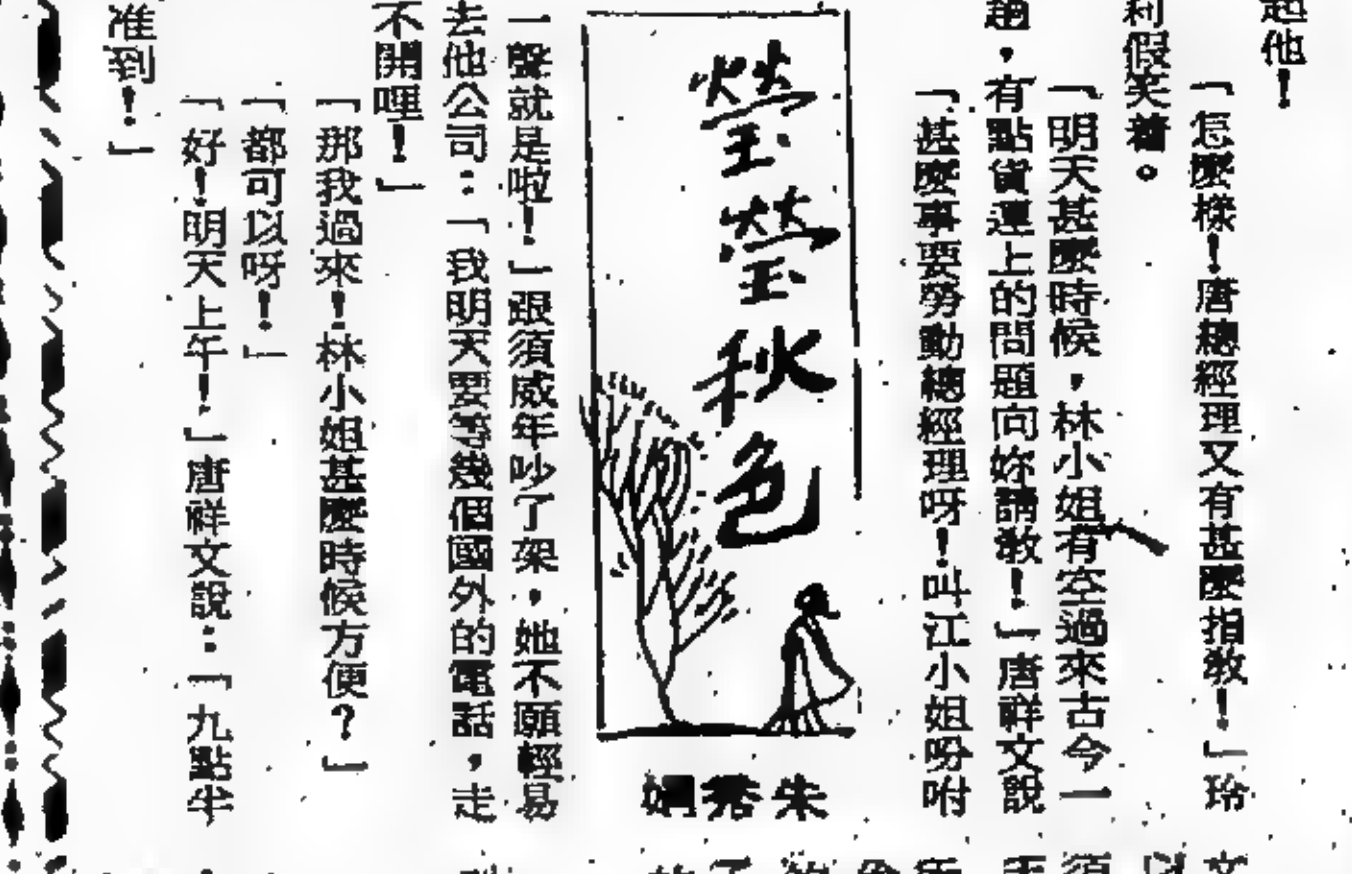 起他！
「怎麼樣！唐總經理又有甚麼指教！」玲
利假笑着。
「明天甚麼時候，林小姐有空過來古今一
趟，有點貨運上的問題向妳請教！」唐祥文說
「甚麼事要勞動總經理呀！叫江小姐吩咐
瑩瑩秋色
朱秀娟
一聲就是啦！」跟須威年吵了架，她不願輕易
去他公司：「我明天要等幾個國外的電話，走
不開哩！」
「那我過來！林小姐甚麼時候方便？」
「都可以呀！」
「好！明天上午！」唐祥文說：「九點半
准到！」